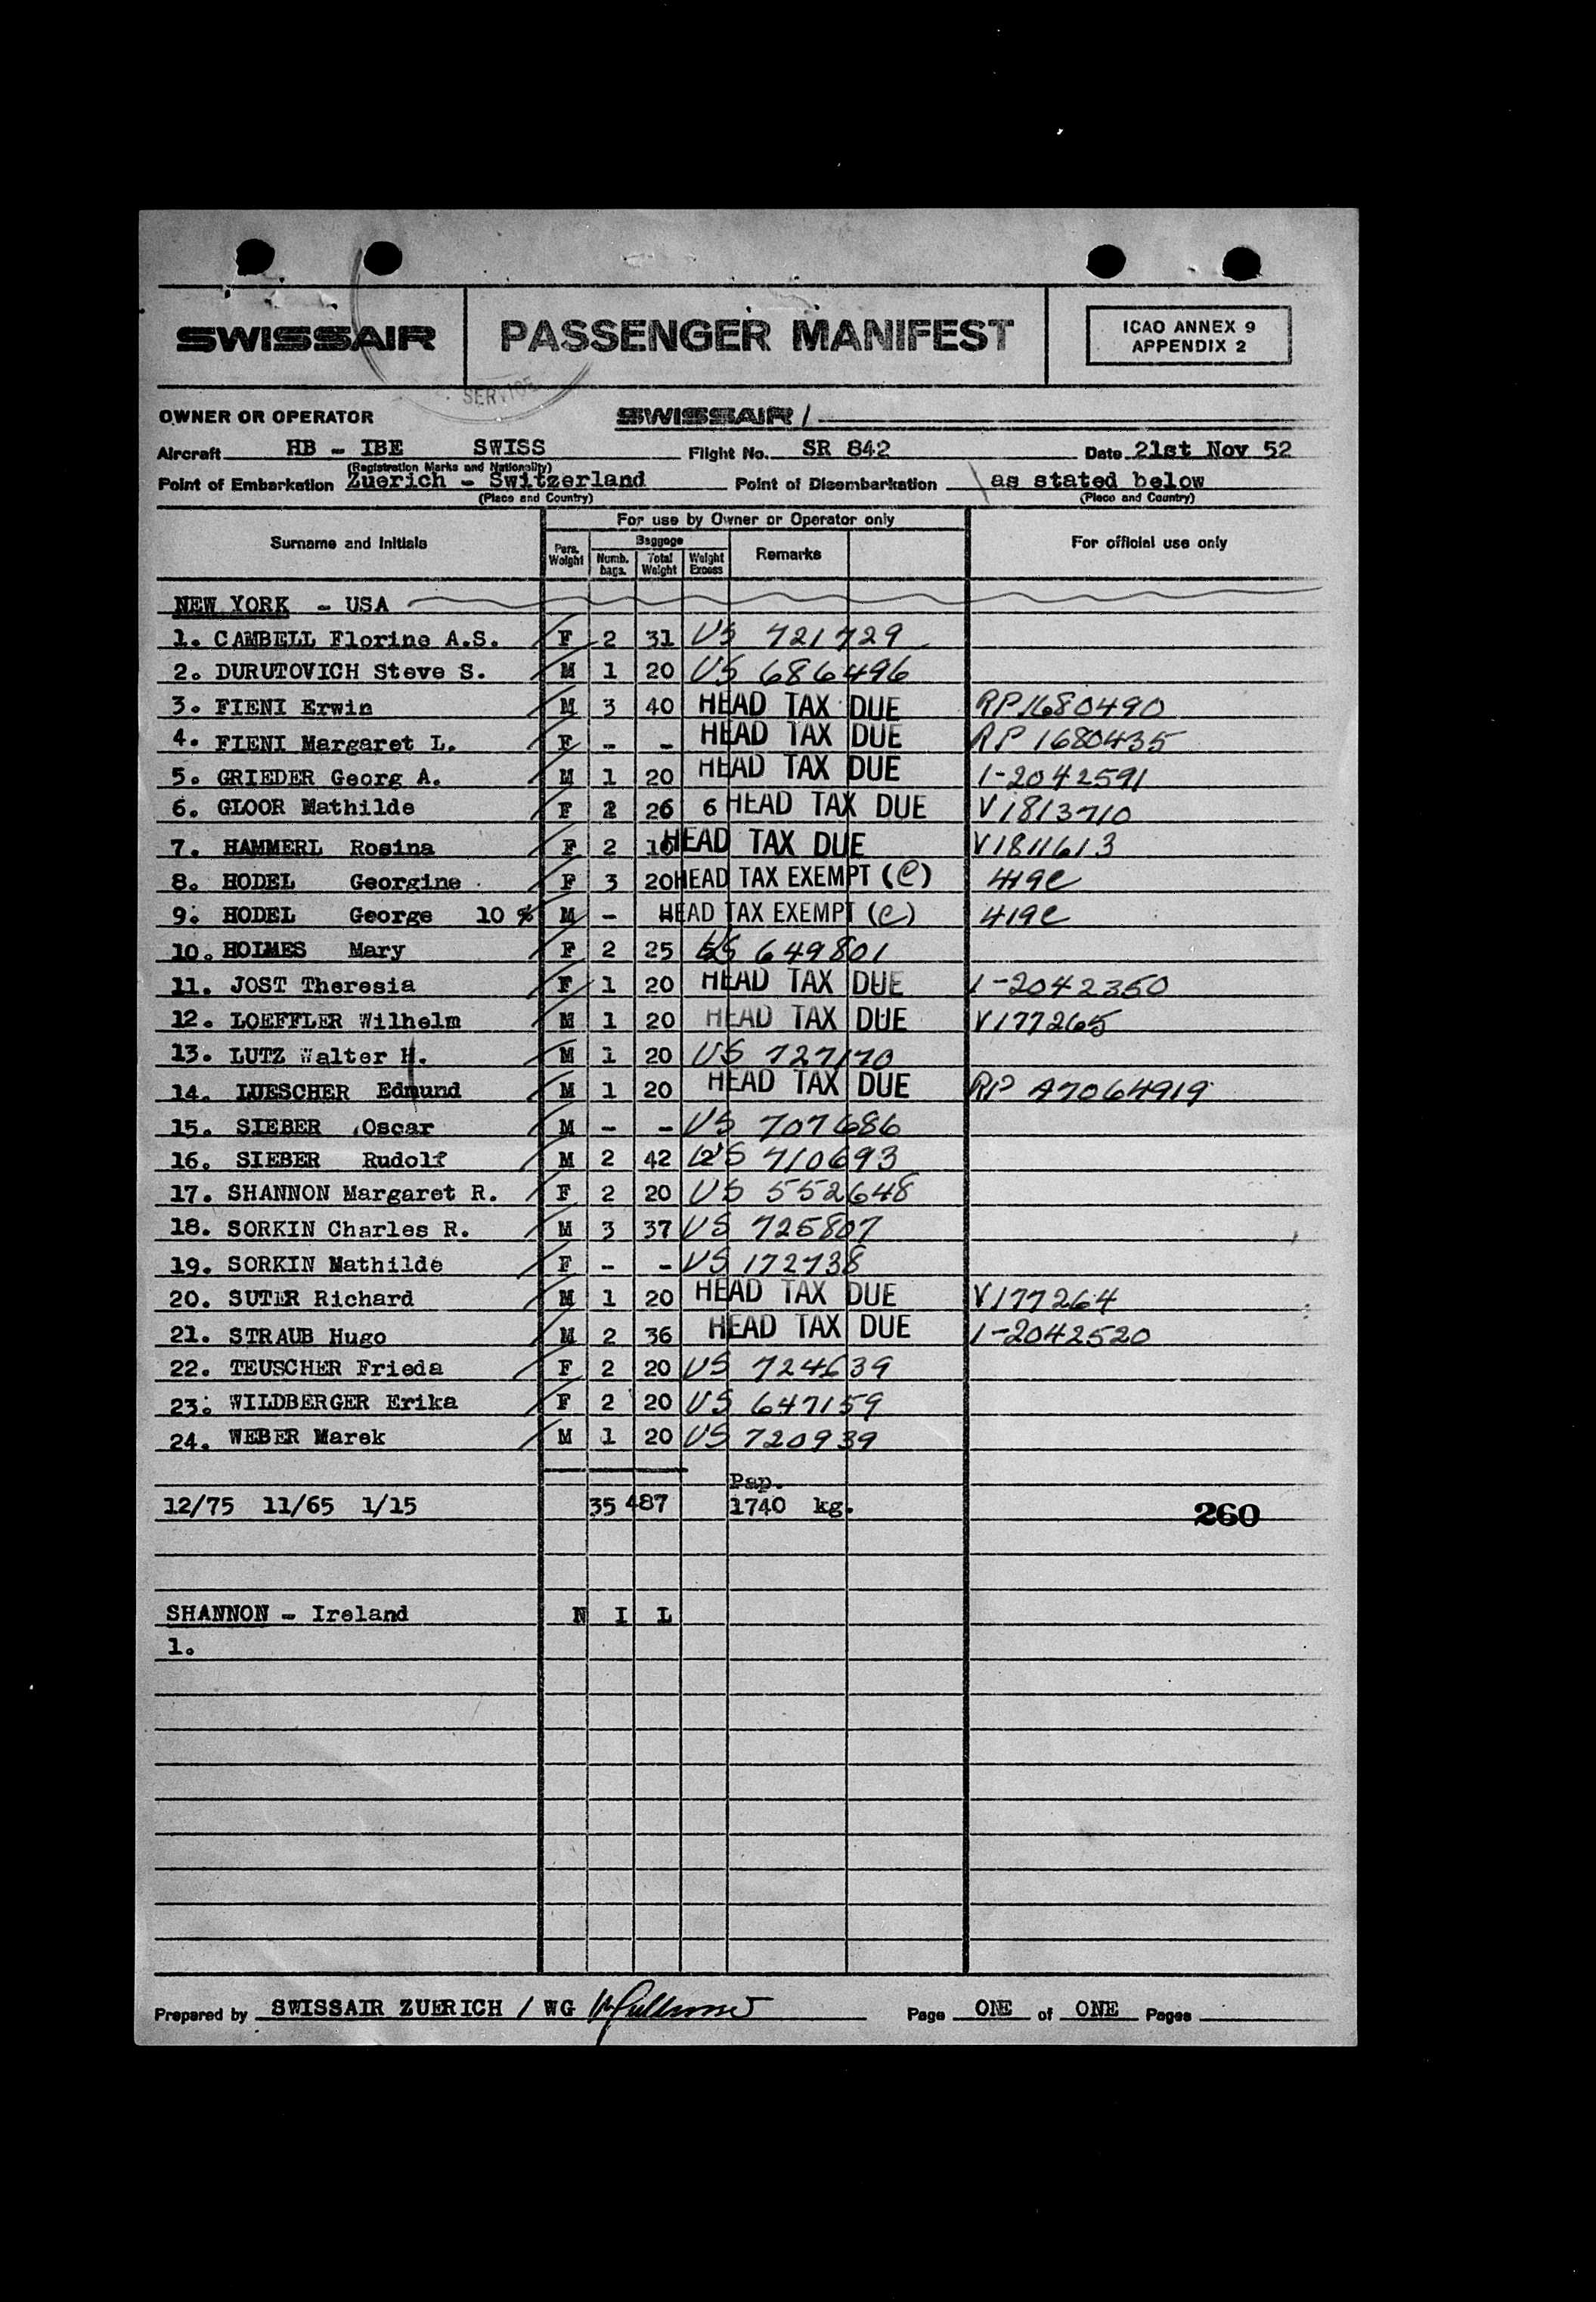 SWISSAIR PASSENGER MANIFEST ICAO ANNEX 9
APPENDIX 2
SERVICE
OWNER OR OPERATOR SWISSAIR /
Aircraft HB - IBE SWISS Flight No. SR 842 Date 21st Nov 52
(Registration Marks and Nationality)
Point of Embarkation Zuerich - Switzerland Point of Disembarkation as stated below
(Place and Country) (Place and Country)
For use by Owner or Operator only
Surname and Initials Pers. Weight Baggage Numb. bags. Total Weight Weight Excess Remarks For official use only
NEW YORK - USA
1. CAMBELL Florine A.S. F 2 31 US 721729
2. DURUTOVICH Steve S. M 1 20 US 686496
3. FIENI Erwin M 3 40 HEAD TAX DUE RP1680490
4. FIENI Margaret L. F - - HEAD TAX DUE RP 1680435
5. GRIEDER Georg A. M 1 20 HEAD TAX DUE 1-2042591
6. GLOOR Mathilde F 2 26 6 HEAD TAX DUE V1813710
7. HAMMERL Rosina F 2 HEAD TAX DUE V1811613
8. HODEL Georgine F 3 20 HEAD TAX EXEMPT (C) 419C
9. HODEL George 10 % M - HEAD TAX EXEMPT (C) 419C
10. HOLMES Mary F 2 25 US 649801
11. JOST Theresia F 1 20 HEAD TAX DUE 1-2042350
12. LOEFFLER Wilhelm M 1 20 HEAD TAX DUE V177265
13. LUTZ Walter H. M 1 20 US 727170
14. LUESCHER Edmund M 1 20 HEAD TAX DUE RP A7064919
15. SIEBER Oscar M - - US 707686
16. SIEBER Rudolf M 2 42 US 710693
17. SHANNON Margaret R. F 2 20 US 552648
18. SORKIN Charles R. M 3 37 US 725807
19. SORKIN Mathilde F - - US 172738
20. SUTER Richard M 1 20 HEAD TAX DUE V177264
21. STRAUB Hugo M 2 36 HEAD TAX DUE 1-2042520
22. TEUSCHER Frieda F 2 20 US 724639
23. WILDBERGER Erika F 2 20 US 647159
24. WEBER Marek M 1 20 US 720939
Pap.
12/75 11/65 1/15 35 487 1740 kg. 260
SHANNON - Ireland N I L
1.
Prepared by SWISSAIR ZUERICH / WG Page ONE of ONE Pages